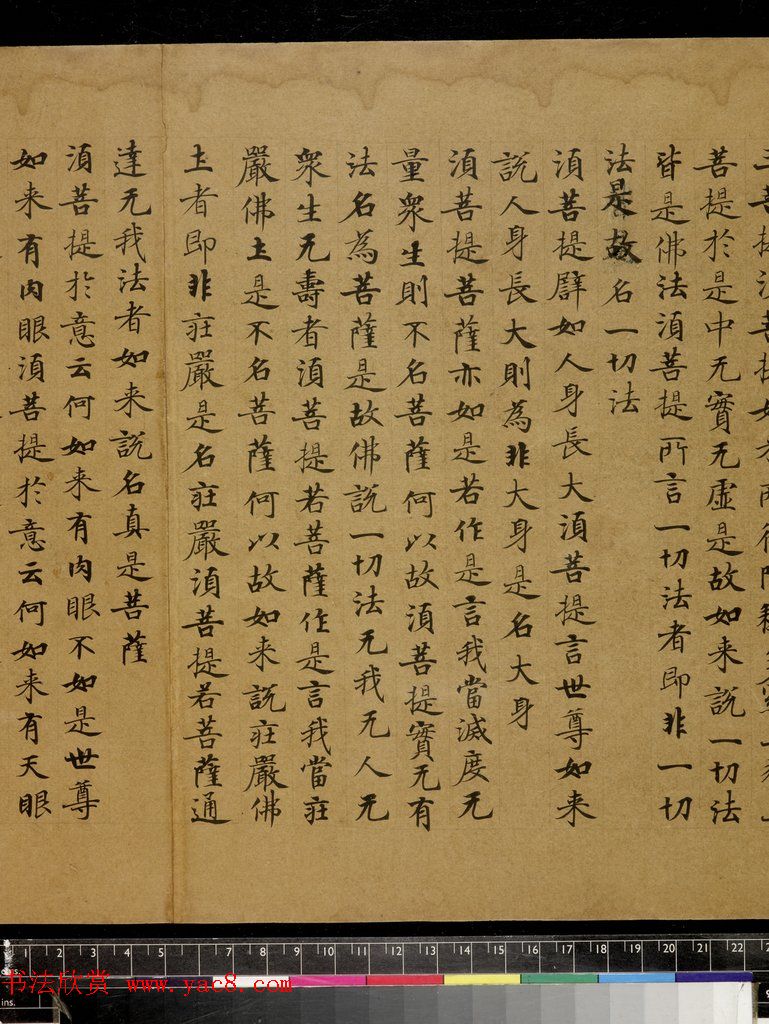 菩提於是中无實无虛是故如来說一切法
皆是佛法須菩提所言一切法者即非一切
法是故名一切法
須菩提譬如人身長大須菩提言世尊如来
說人身長大則為非大身是名大身
須菩提菩薩亦如是若作是言我當滅度无
量衆生則不名菩薩何以故須菩提實无有
法名為菩薩是故佛說一切法无我无人无
衆生无壽者須菩提若菩薩作是言我當莊
嚴佛土是不名菩薩何以故如来說莊嚴佛
土者即非莊嚴是名莊嚴須菩提若菩薩通
達无我法者如来說名真是菩薩
須菩提於意云何如来有肉眼不如是世尊
如来有肉眼須菩提於意云何如来有天眼
1 2 3 4 5 7 8 9 10 11 12 13 14 15 16 17 18 19 20 21 22
cms.
书法欣赏 www.yac8.com
ins.